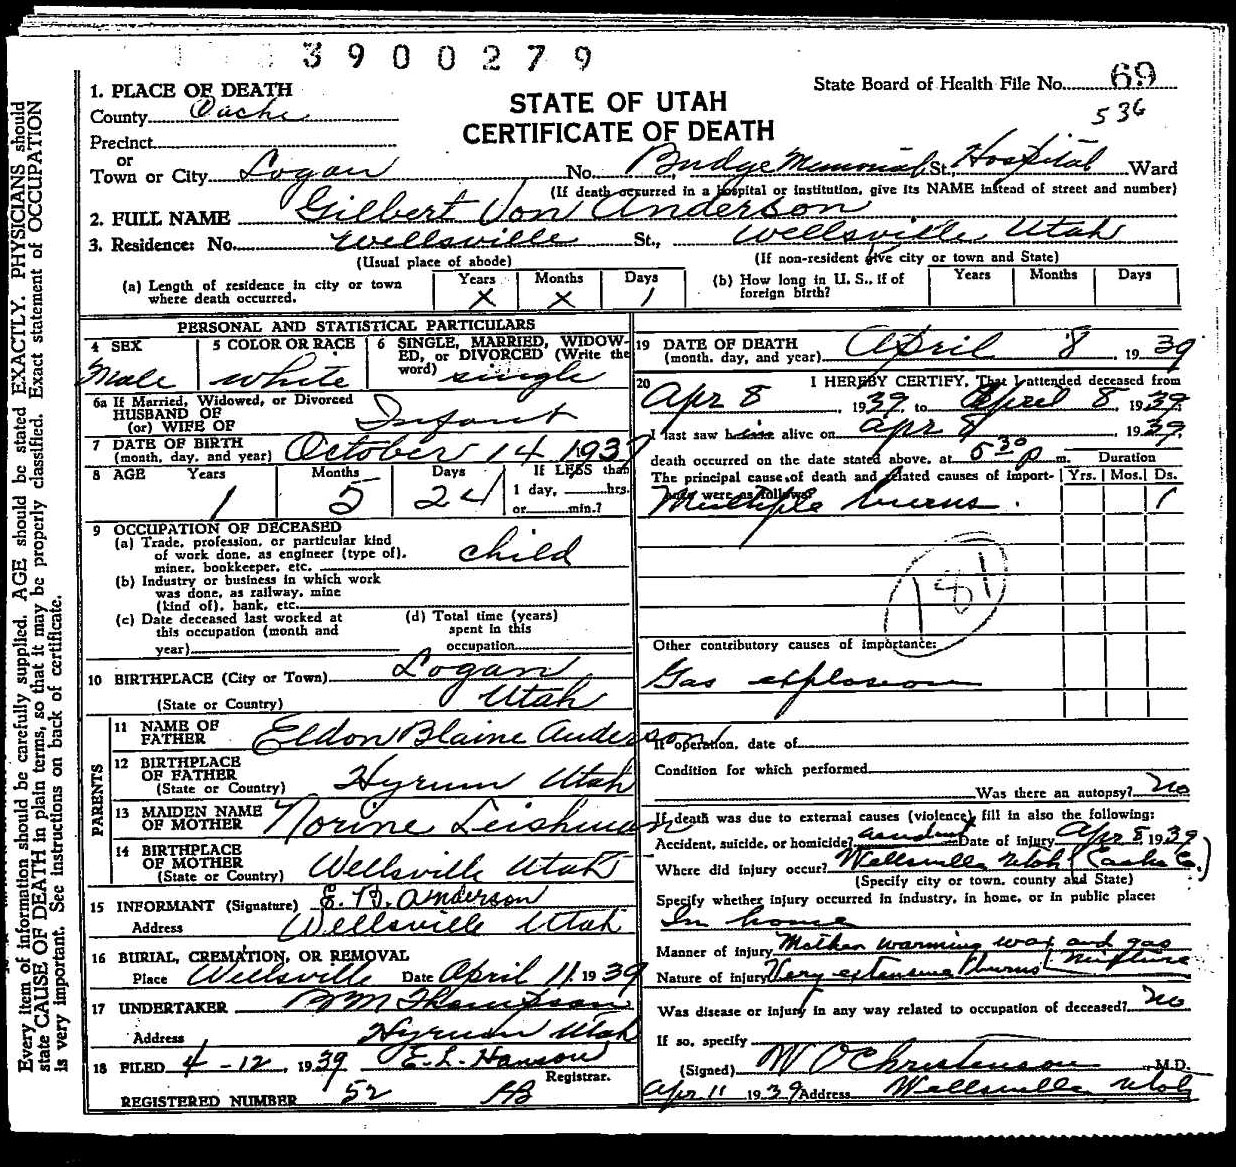 3900279
State Board of Health File No. 69
536
STATE OF UTAH
CERTIFICATE OF DEATH
1. PLACE OF DEATH
County Cache
Precinct
or
Town or City Logan No. Budge Memorial St., Hospital Ward
(If death occurred in a hospital or institution, give its NAME instead of street and number)
2. FULL NAME Gilbert Von Anderson
3. Residence: No. Wellsville St., Wellsville Utah
(Usual place of abode) (If non-resident give city or town and State)
(a) Length of residence in city or town where death occurred. Years X Months X Days 1
(b) How long in U. S., if of foreign birth? Years Months Days
PERSONAL AND STATISTICAL PARTICULARS
4 SEX Male
5 COLOR OR RACE white
6 SINGLE, MARRIED, WIDOWED, or DIVORCED (Write the word) single
6a If Married, Widowed, or Divorced
HUSBAND OF
(or) WIFE OF Infant
7 DATE OF BIRTH (month, day, and year) October 14 1937
8 AGE Years 1 Months 5 Days 24 If LESS than 1 day, hrs. or min.?
9 OCCUPATION OF DECEASED
(a) Trade, profession, or particular kind of work done, as engineer (type of), miner, bookkeeper, etc. child
(b) Industry or business in which work was done, as railway, mine (kind of), bank, etc.
(c) Date deceased last worked at this occupation (month and year)
(d) Total time (years) spent in this occupation
10 BIRTHPLACE (City or Town) Logan
(State or Country) Utah
PARENTS
11 NAME OF FATHER Eldon Blaine Anderson
12 BIRTHPLACE OF FATHER (State or Country) Hyrum Utah
13 MAIDEN NAME OF MOTHER Norine Leishman
14 BIRTHPLACE OF MOTHER (State or Country) Wellsville Utah
15 INFORMANT (Signature) E. B. Anderson
Address Wellsville Utah
16 BURIAL, CREMATION, OR REMOVAL
Place Wellsville Date April 11, 1939
17 UNDERTAKER B M Thompson
Address Hyrum Utah
18 FILED 4-12, 1939 E. L. Hanson
Registrar.
REGISTERED NUMBER 52
19 DATE OF DEATH (month, day, and year) April 8, 1939
20 I HEREBY CERTIFY, That I attended deceased from
Apr 8, 1939, to April 8, 1939.
I last saw him alive on apr 8 1939.
death occurred on the date stated above, at 5 30 p m. Duration
The principal cause of death and related causes of importance were as follows: Yrs. Mos. Ds.
Multiple burns. 1
181
Other contributory causes of importance:
Gas explosion
If operation, date of
Condition for which performed
Was there an autopsy? No
If death was due to external causes (violence), fill in also the following:
Accident, suicide, or homicide? accident Date of injury Apr 8, 1939
Where did injury occur? Wellsville Utah (Cache Co.)
(Specify city or town, county and State)
Specify whether injury occurred in industry, in home, or in public place:
In home
Manner of injury Mother warming wax and gas mixture
Nature of injury Very extensive burns
Was disease or injury in any way related to occupation of deceased? No
If so, specify
(Signed) W O Christenson M.D.
Apr 11 1939 Address Wellsville, Utah
Every item of information should be carefully supplied. AGE should be stated EXACTLY. PHYSICIANS should
state CAUSE OF DEATH in plain terms, so that it may be properly classified. Exact statement of OCCUPATION
is very important. See instructions on back of certificate.